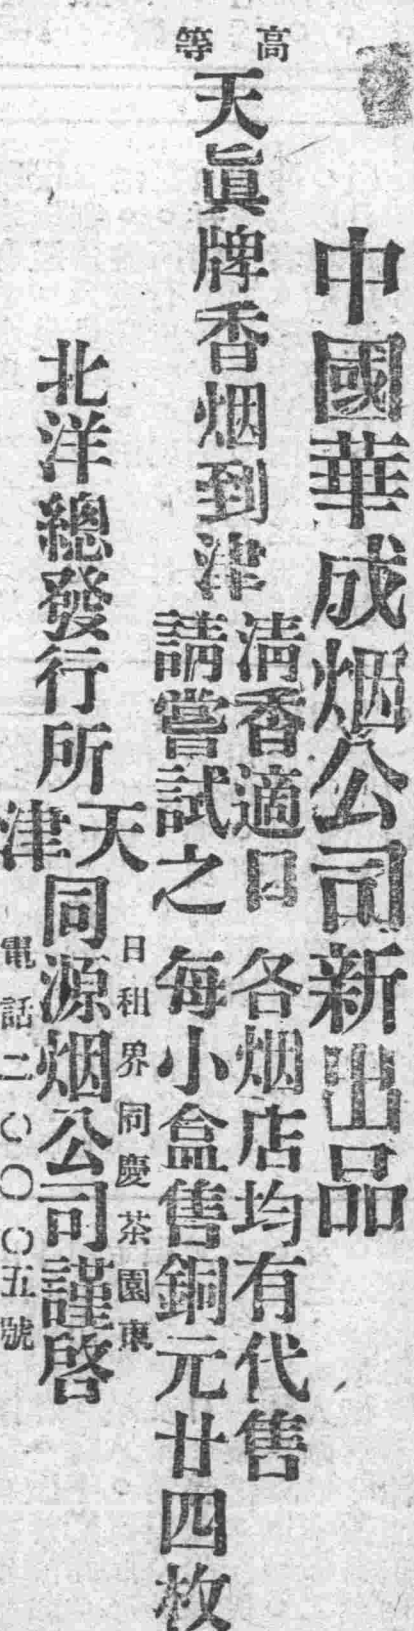 中國華成烟公司新出品
高等
天眞牌香烟到津
淸香適口
請嘗試之
各烟店均有代售
每小盒售銅元廿四枚
北洋總發行所
天津
同源烟公司謹啓
日租界同慶茶園東
電話二〇〇〇五號